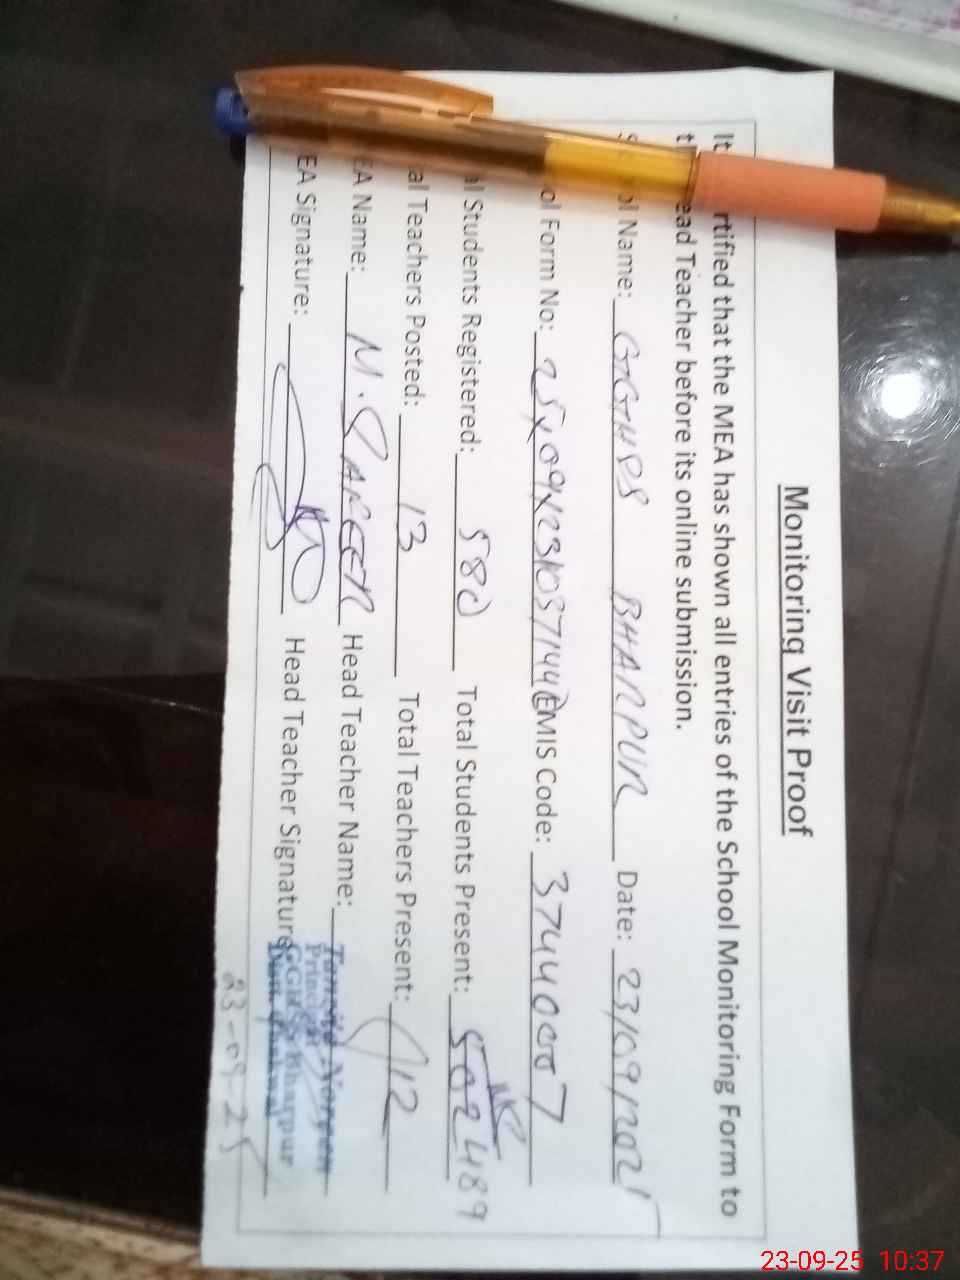 Monitoring Visit Proof
It rtified that the MEA has shown all entries of the School Monitoring Form to
t ead Teacher before its online submission.
ol Name: GGHSS BHARPUR Date: 23/09/2025
ol Form No: EMIS Code: 37440007
al Students Registered: 580 Total Students Present: 502 489
al Teachers Posted: 13 Total Teachers Present: 12
EA Name: M. Head Teacher Name:
EA Signature: Head Teacher Signature
Principal
GGHSS Bharpur
23-09-25
23-09-25 10:37